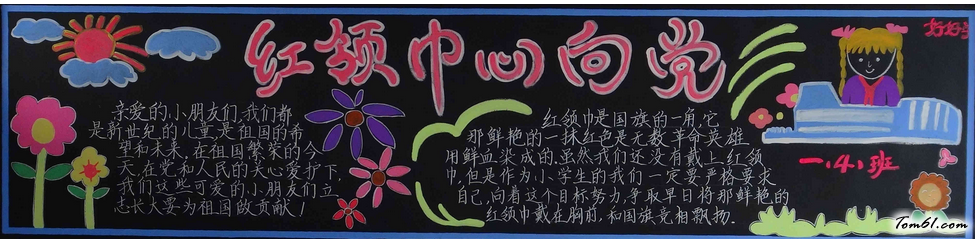 红领巾心向党
亲爱的小朋友们,我们都
是新世纪的儿童,是祖国的希
望和未来,在祖国繁荣的今
天,在党和人民的关心爱护下,
我们这些可爱的小朋友们立
志长大要为祖国做贡献!
红领巾是国旗的一角,它
那鲜艳的一抹红色是无数革命英雄
用鲜血染成的.虽然我们还没有戴上红领
巾,但是作为小学生的我们一定要严格要求
自己,向着这个目标努力,争取早日将那鲜艳的
红领巾戴在胸前,和国旗竞相飘扬.
一.(4)班
Tom61.com